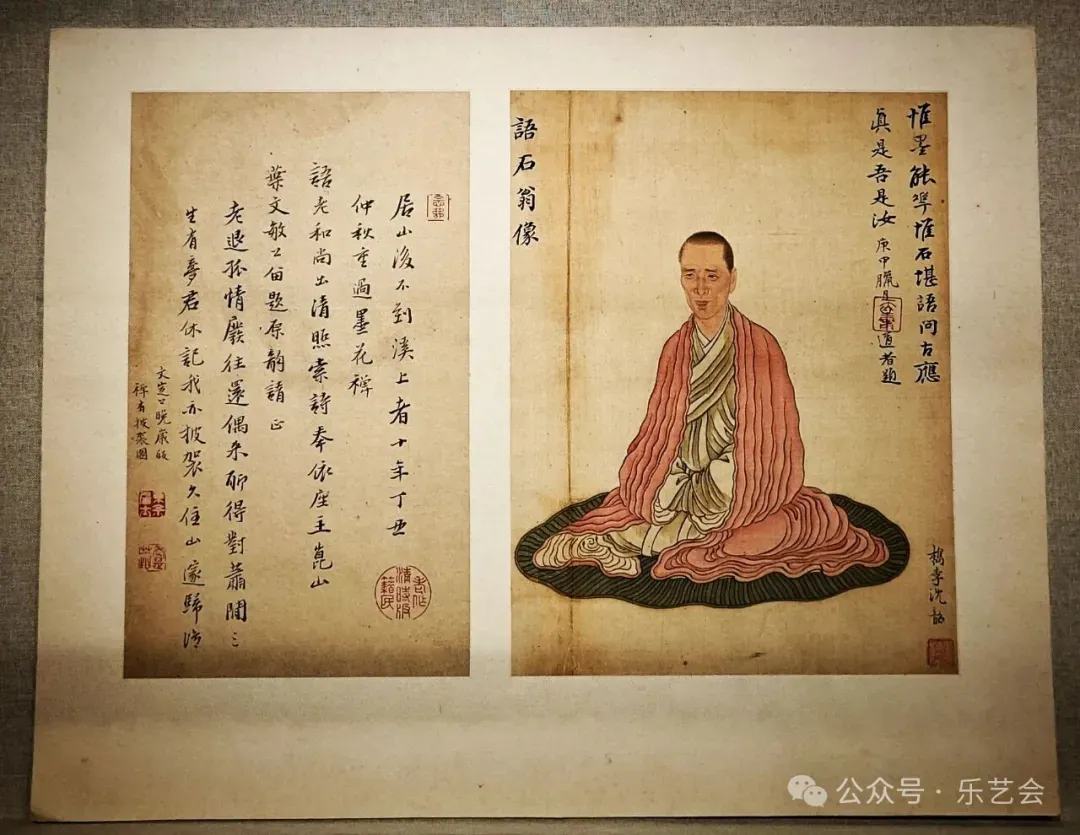 惟墨能舉惟石堪語問古應
真是吾是汝
庚申臘
道者題
語石翁像
檇李沈韶
居山後不到溪上者十年丁丑
仲秋重過墨花禪
語老和尚出清照索詩奉依座主崑山
葉文敏公自題原韵請正
老退孤情廢往還偶來聊得對蕭閒三
生有夢君休記我亦披袈久住山
文定公晚歲
披裘圖
公众号·乐艺会